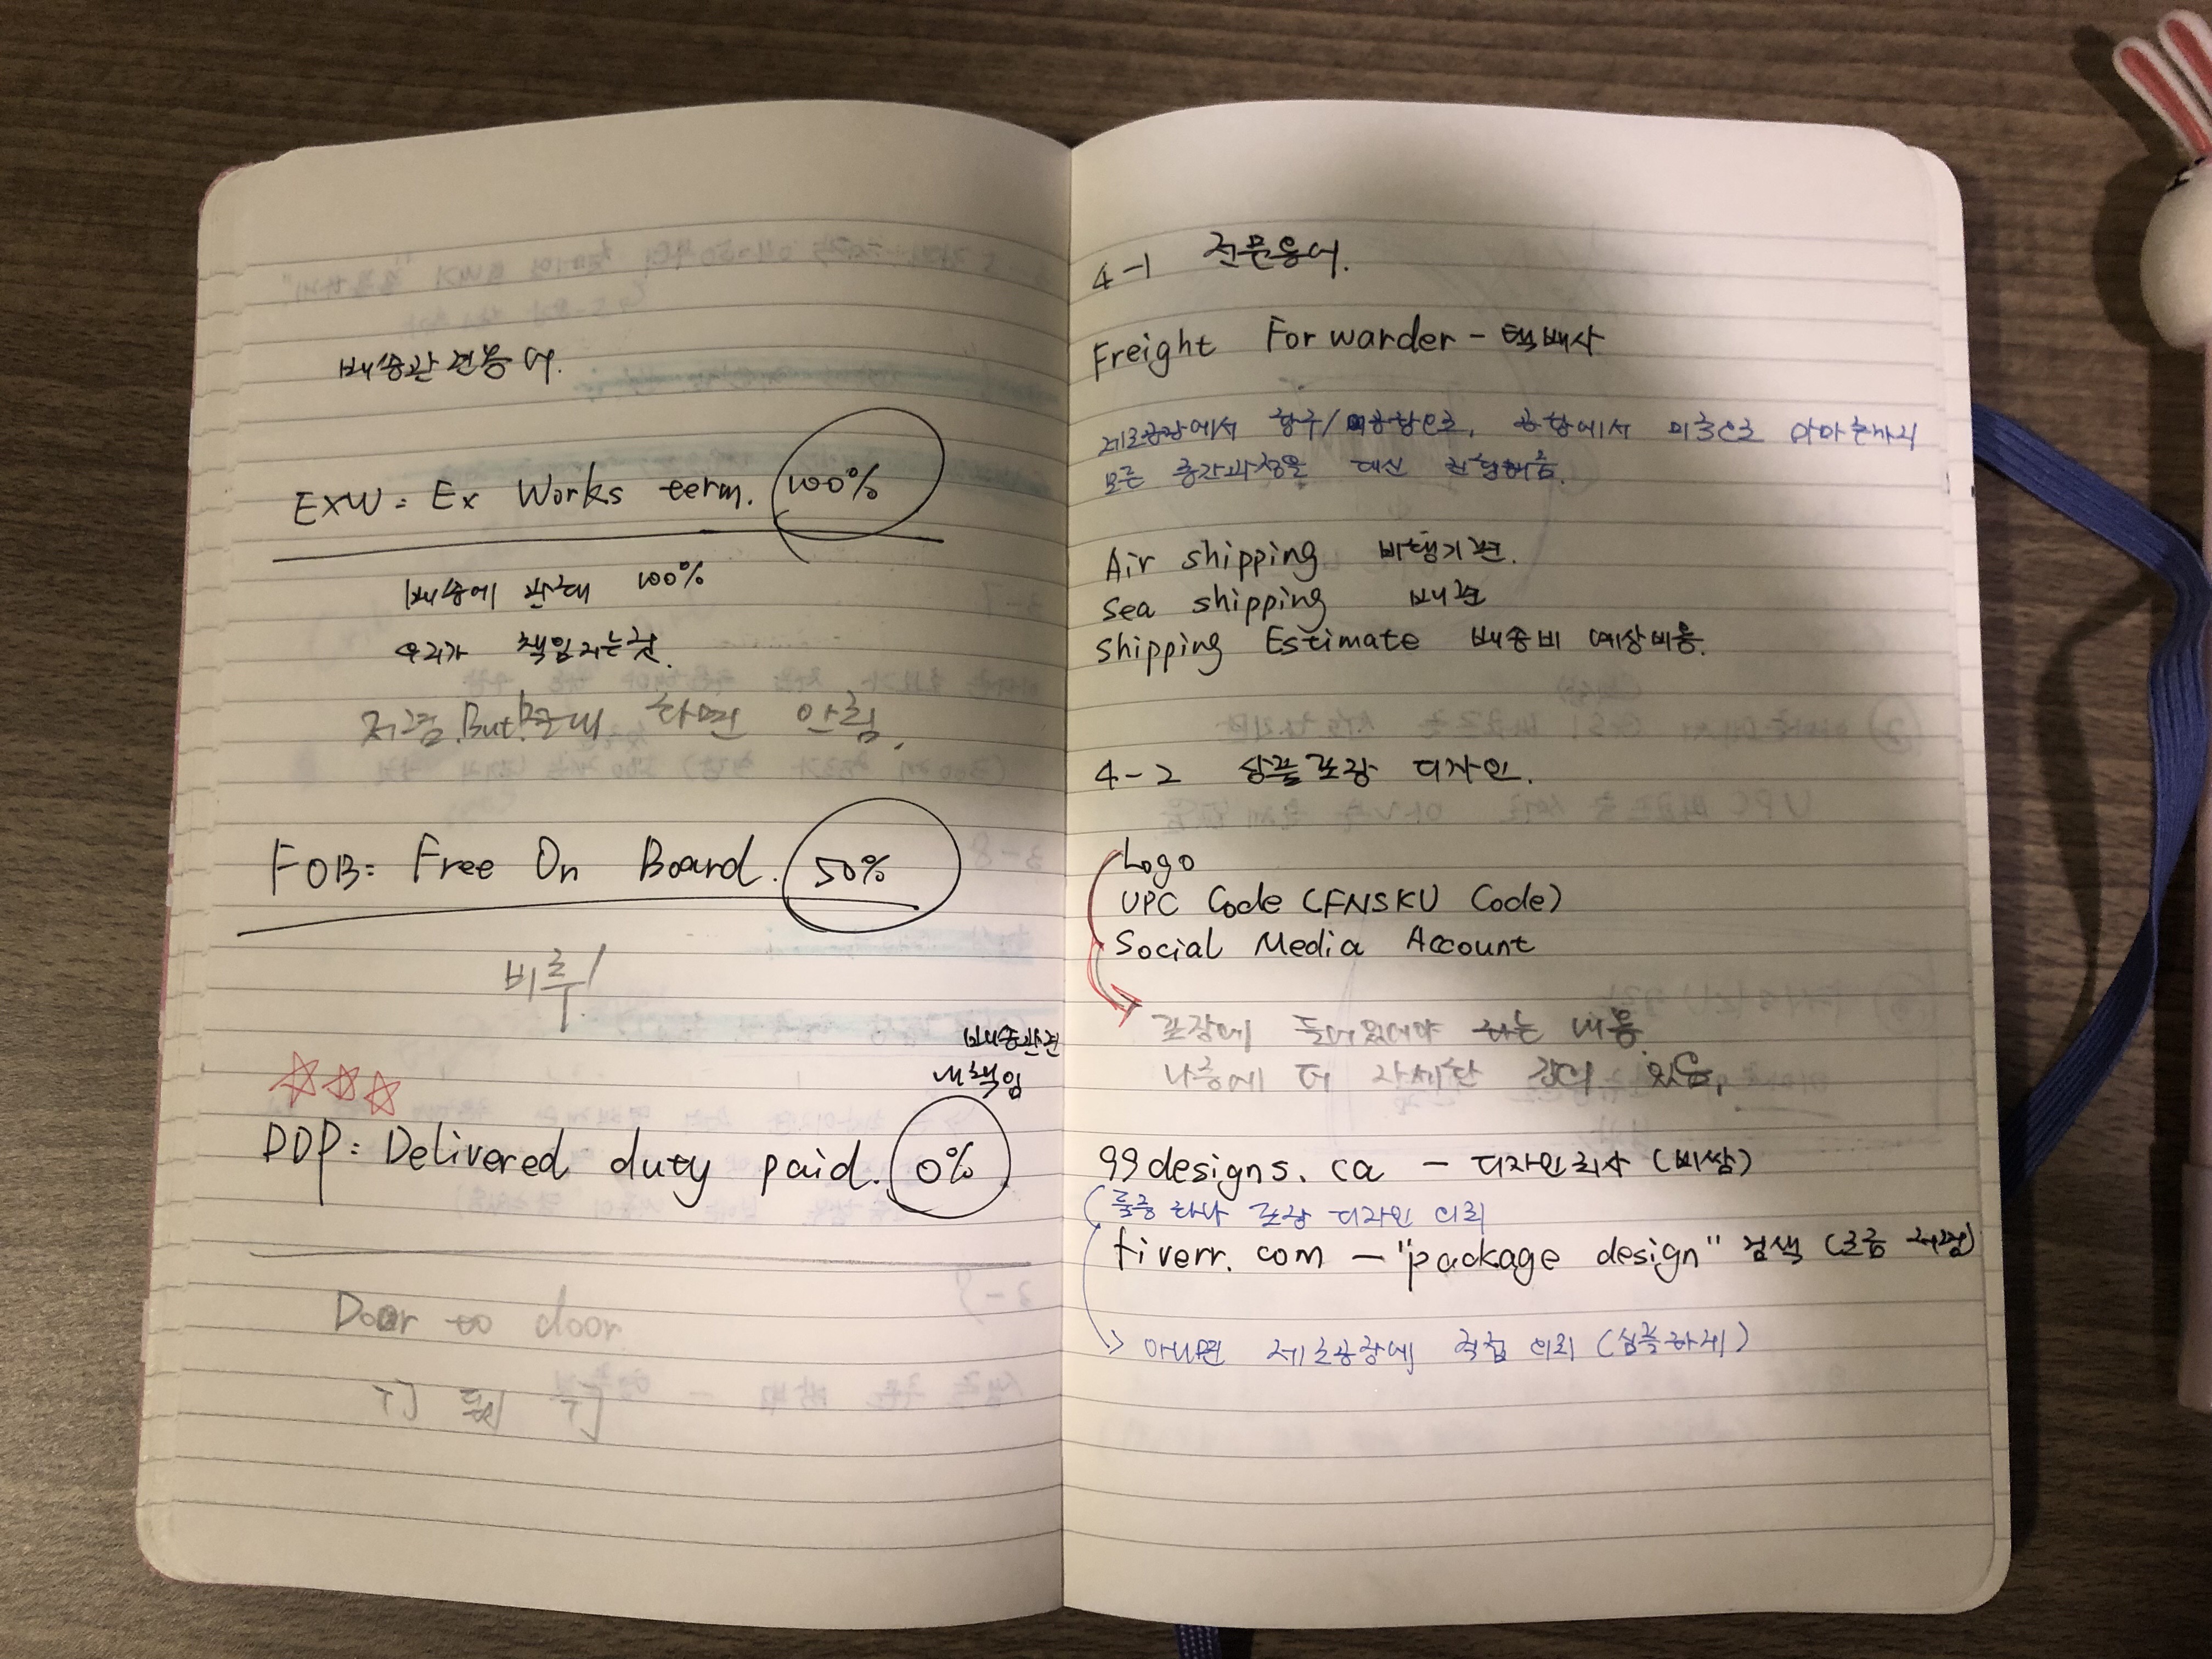 배송관련용어.
EXW = Ex Works term. 100%
배송에 관해 100%
우리가 책임지는것.
저렴. But 절대 하면 안됨.
FOB = Free On Board. 50%
비루
배송관련
내책임
DDP = Delivered duty paid. 0%
Door to door
4-1 전문용어.
Freight Forwarder - 택배사
제조공장에서 항구/공항으로, 공항에서 미국으로 아마존까지
모든 중간과정을 대신 진행해줌.
Air shipping 비행기편.
Sea shipping 배편
Shipping Estimate 배송비 예상비용.
4-2 상품포장 디자인.
Logo
UPC Code (FNSKU Code)
Social Media Account
포장에 들어있어야 하는 내용.
나중에 더 자세한 강의 있음.
99designs.ca - 디자인회사 (비쌈)
둘중 하나 포장 디자인 의뢰
fiverr.com - "package design" 검색 (조금 저렴)
아니면 제조공장에 직접 의뢰 (심플하게)